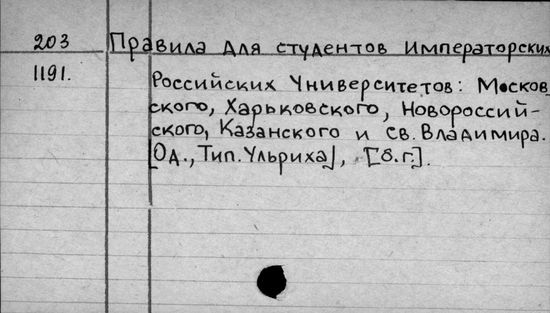 203 Правила для студентов Императорских
1191. Российских Университетов: Москов
ского, Харьковского, Новороссий-
ского, Казанского и Св. Владимира.
[Од., Тип. Ульриха], [б.г.].